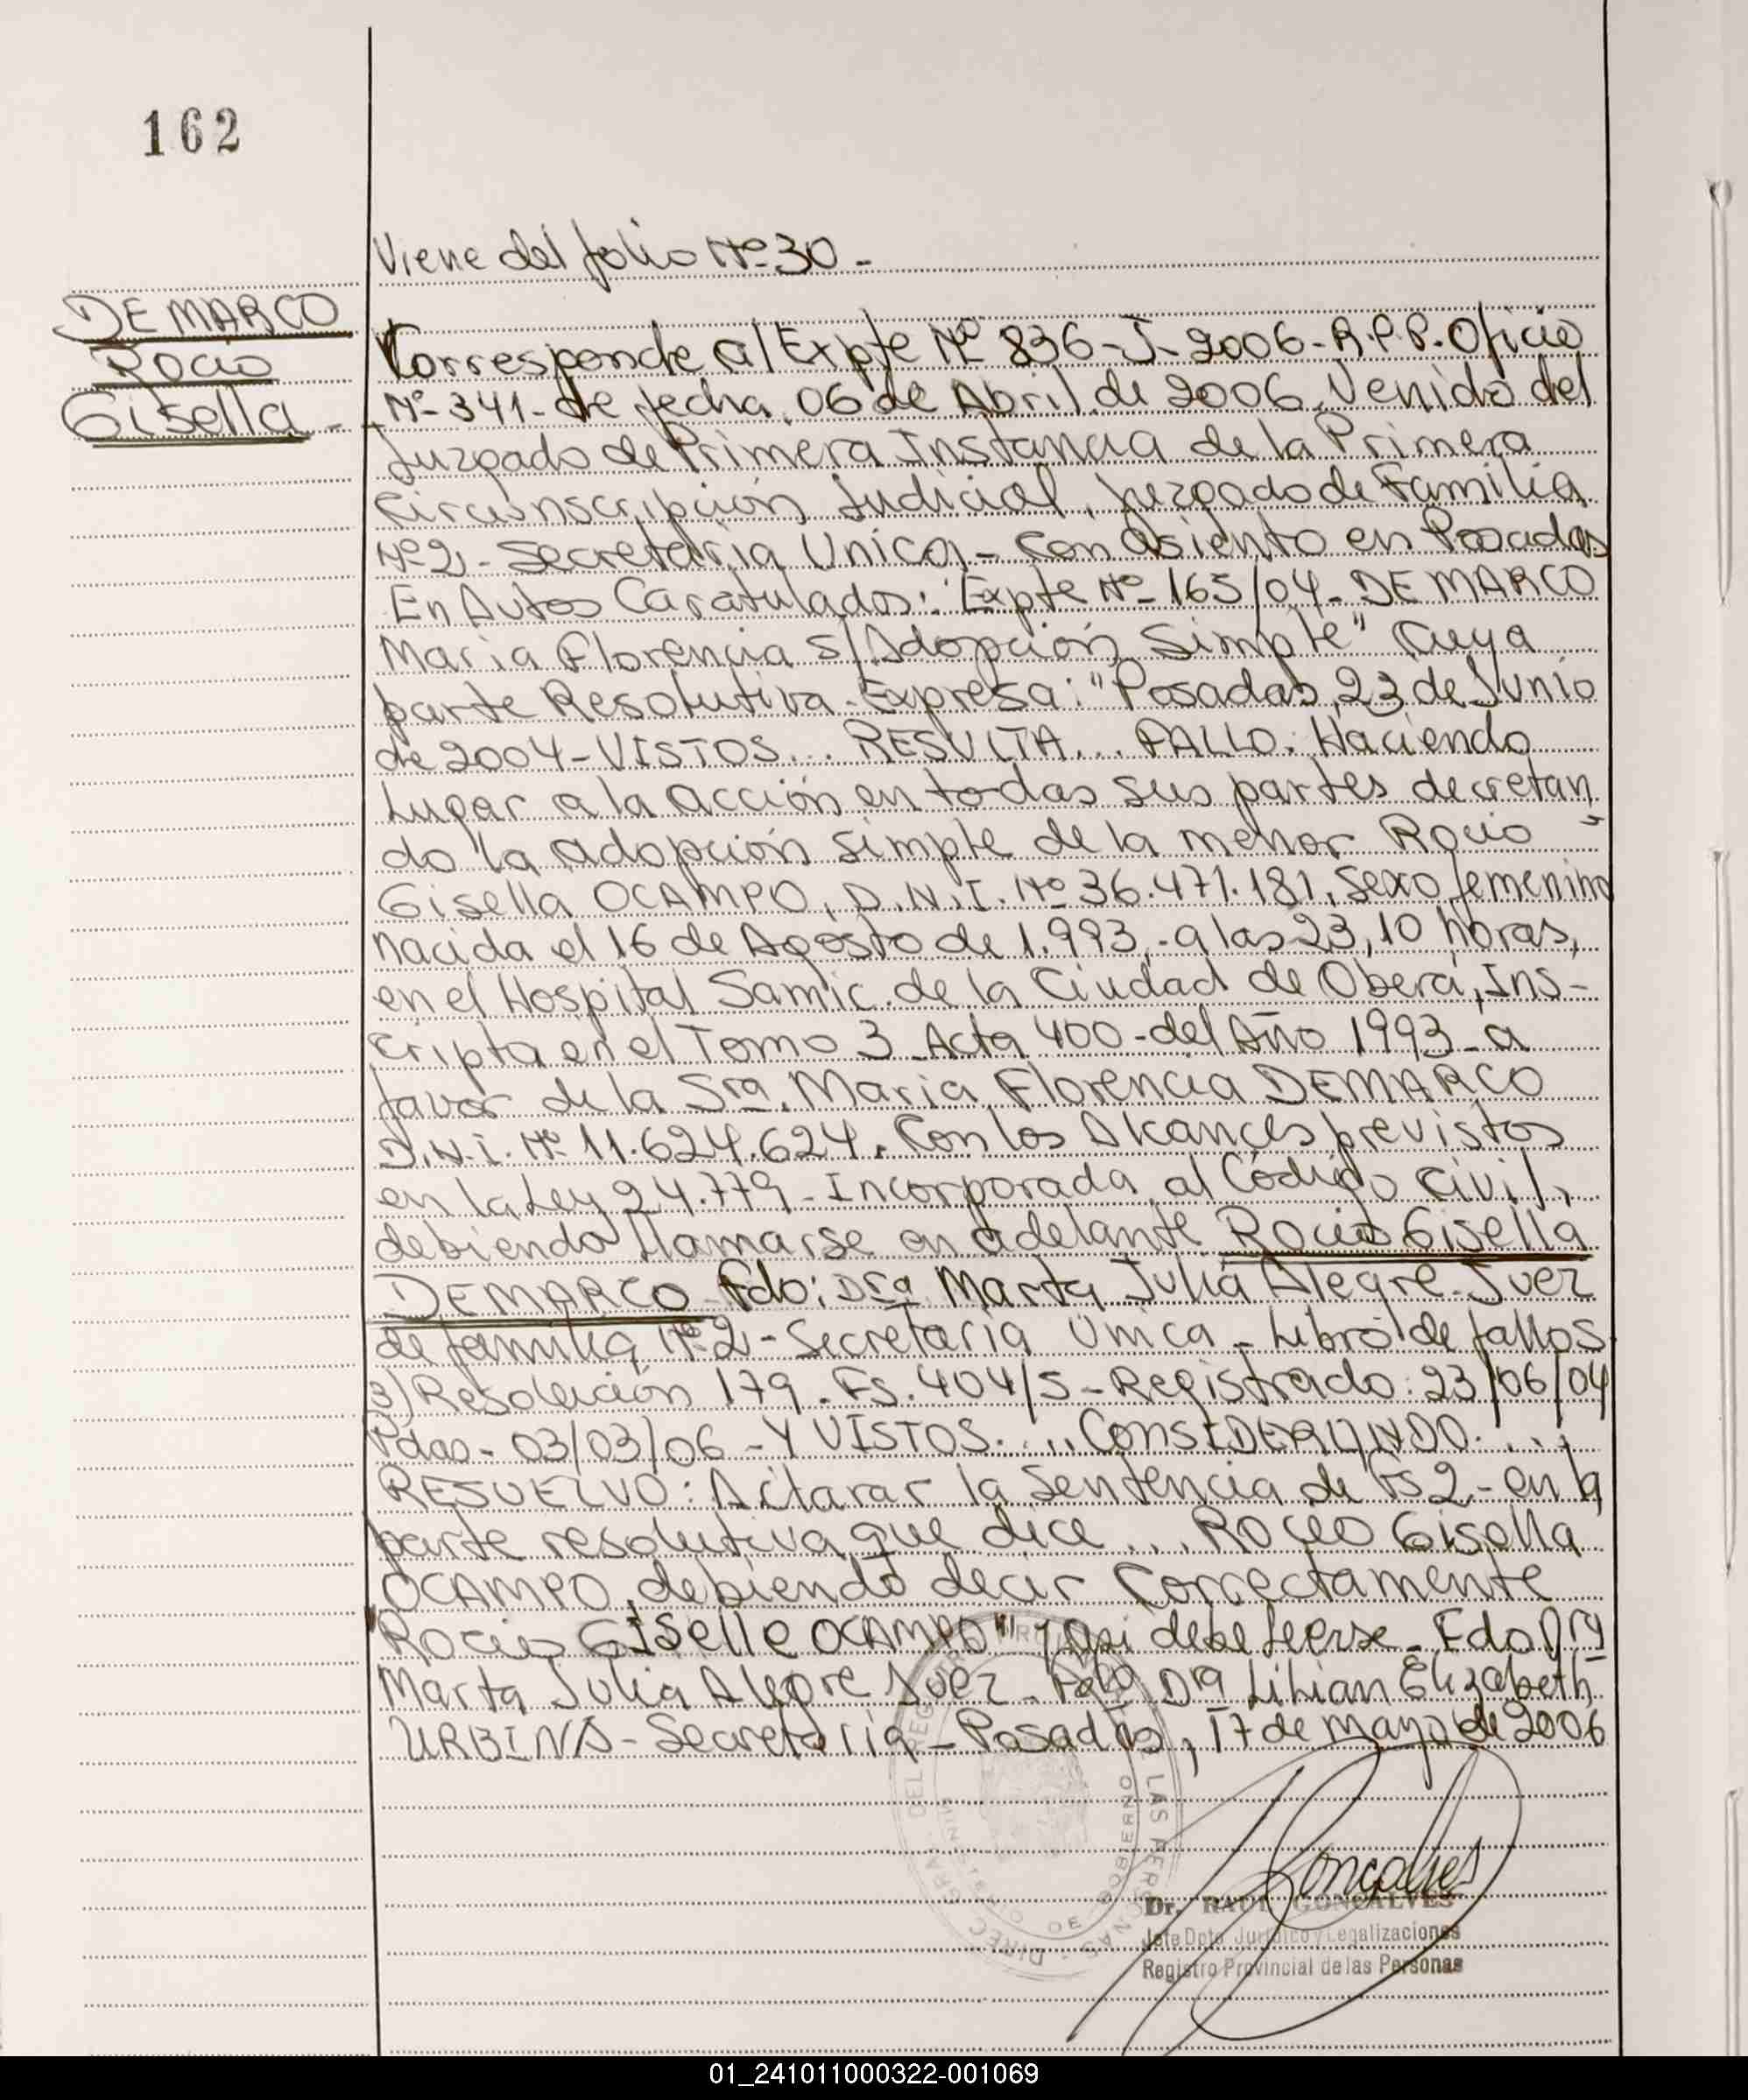 162
Viene del folio Nº 30 -
DEMARCO
Rocio
Gisella -
Corresponde al Expte Nº 836-J-2006-R.P.P. Oficio
Nº 341- de fecha 06 de Abril de 2006, Venido del
Juzgado de Primera Instancia de la Primera
Circunscripción Judicial, Juzgado de Familia
Nº 2 - Secretaria Unica - Con asiento en Posadas
En Autos Caratulados: "Expte Nº 165/04 - DEMARCO
Maria Florencia s/Adopción Simple" Cuya
parte Resolutiva Expresa: "Posadas, 23 de Junio
de 2004 - VISTOS... RESULTA... FALLO: Haciendo
Lugar a la acción en todas sus partes decretan
do la adopción simple de la menor Rocio
Gisella OCAMPO, D.N.I. Nº 36.471.181, Sexo femenino
nacida el 16 de Agosto de 1.993,- a las 23,10 horas,
en el Hospital Samic de la Ciudad de Oberá, Ins-
cripta en el Tomo 3 Acta 400 - del Año 1993 - a
favor de la Sra. Maria Florencia DEMARCO
D.N.I. Nº 11.624.624, Con los Alcances previstos
en la Ley 24.779 - Incorporada al Código Civil,
debiendo llamarse en adelante Rocio Gisella
DEMARCO Fdo: Dra Marta Julia Alegre - Juez
de familia Nº 2 - Secretaria Unica - Libro de fallos
3) Resolución 179. Fs. 404/5 - Registrado: 23/06/04
Pdas - 03/03/06 - Y VISTOS..... CONSIDERANDO....
RESUELVO: Aclarar la Sentencia de Fs 2 - en la
parte resolutiva que dice... Rocio Gisella
OCAMPO, debiendo decir Correctamente
Rocio GISelle OCAMPO" y asi debe leerse - Fdo Dra
Marta Julia Alegre Juez - Fdo Dra Lilian Elizabeth
URBINA - Secretaria - Posadas, 17 de mayo de 2006
Goncalves
Dr. RAUL GONCALVES
Jefe Dpto Jurídico y Legalizaciones
Registro Provincial de las Personas
01_241011000322-001069